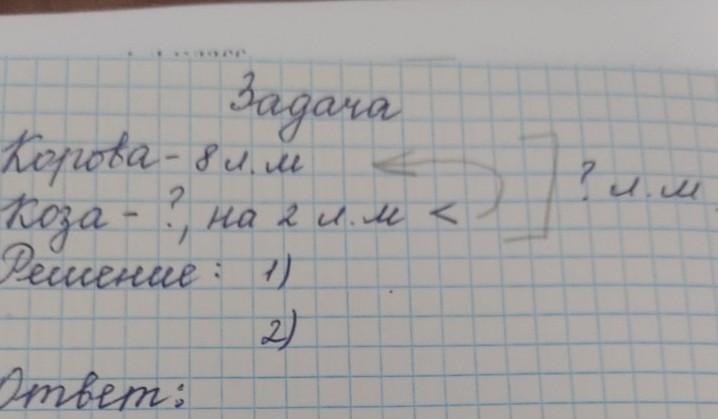 Задача
Корова - 8 л.м
Коза - ?, на 2 л.м < ? л.м
Решение: 1)
2)
Ответ: